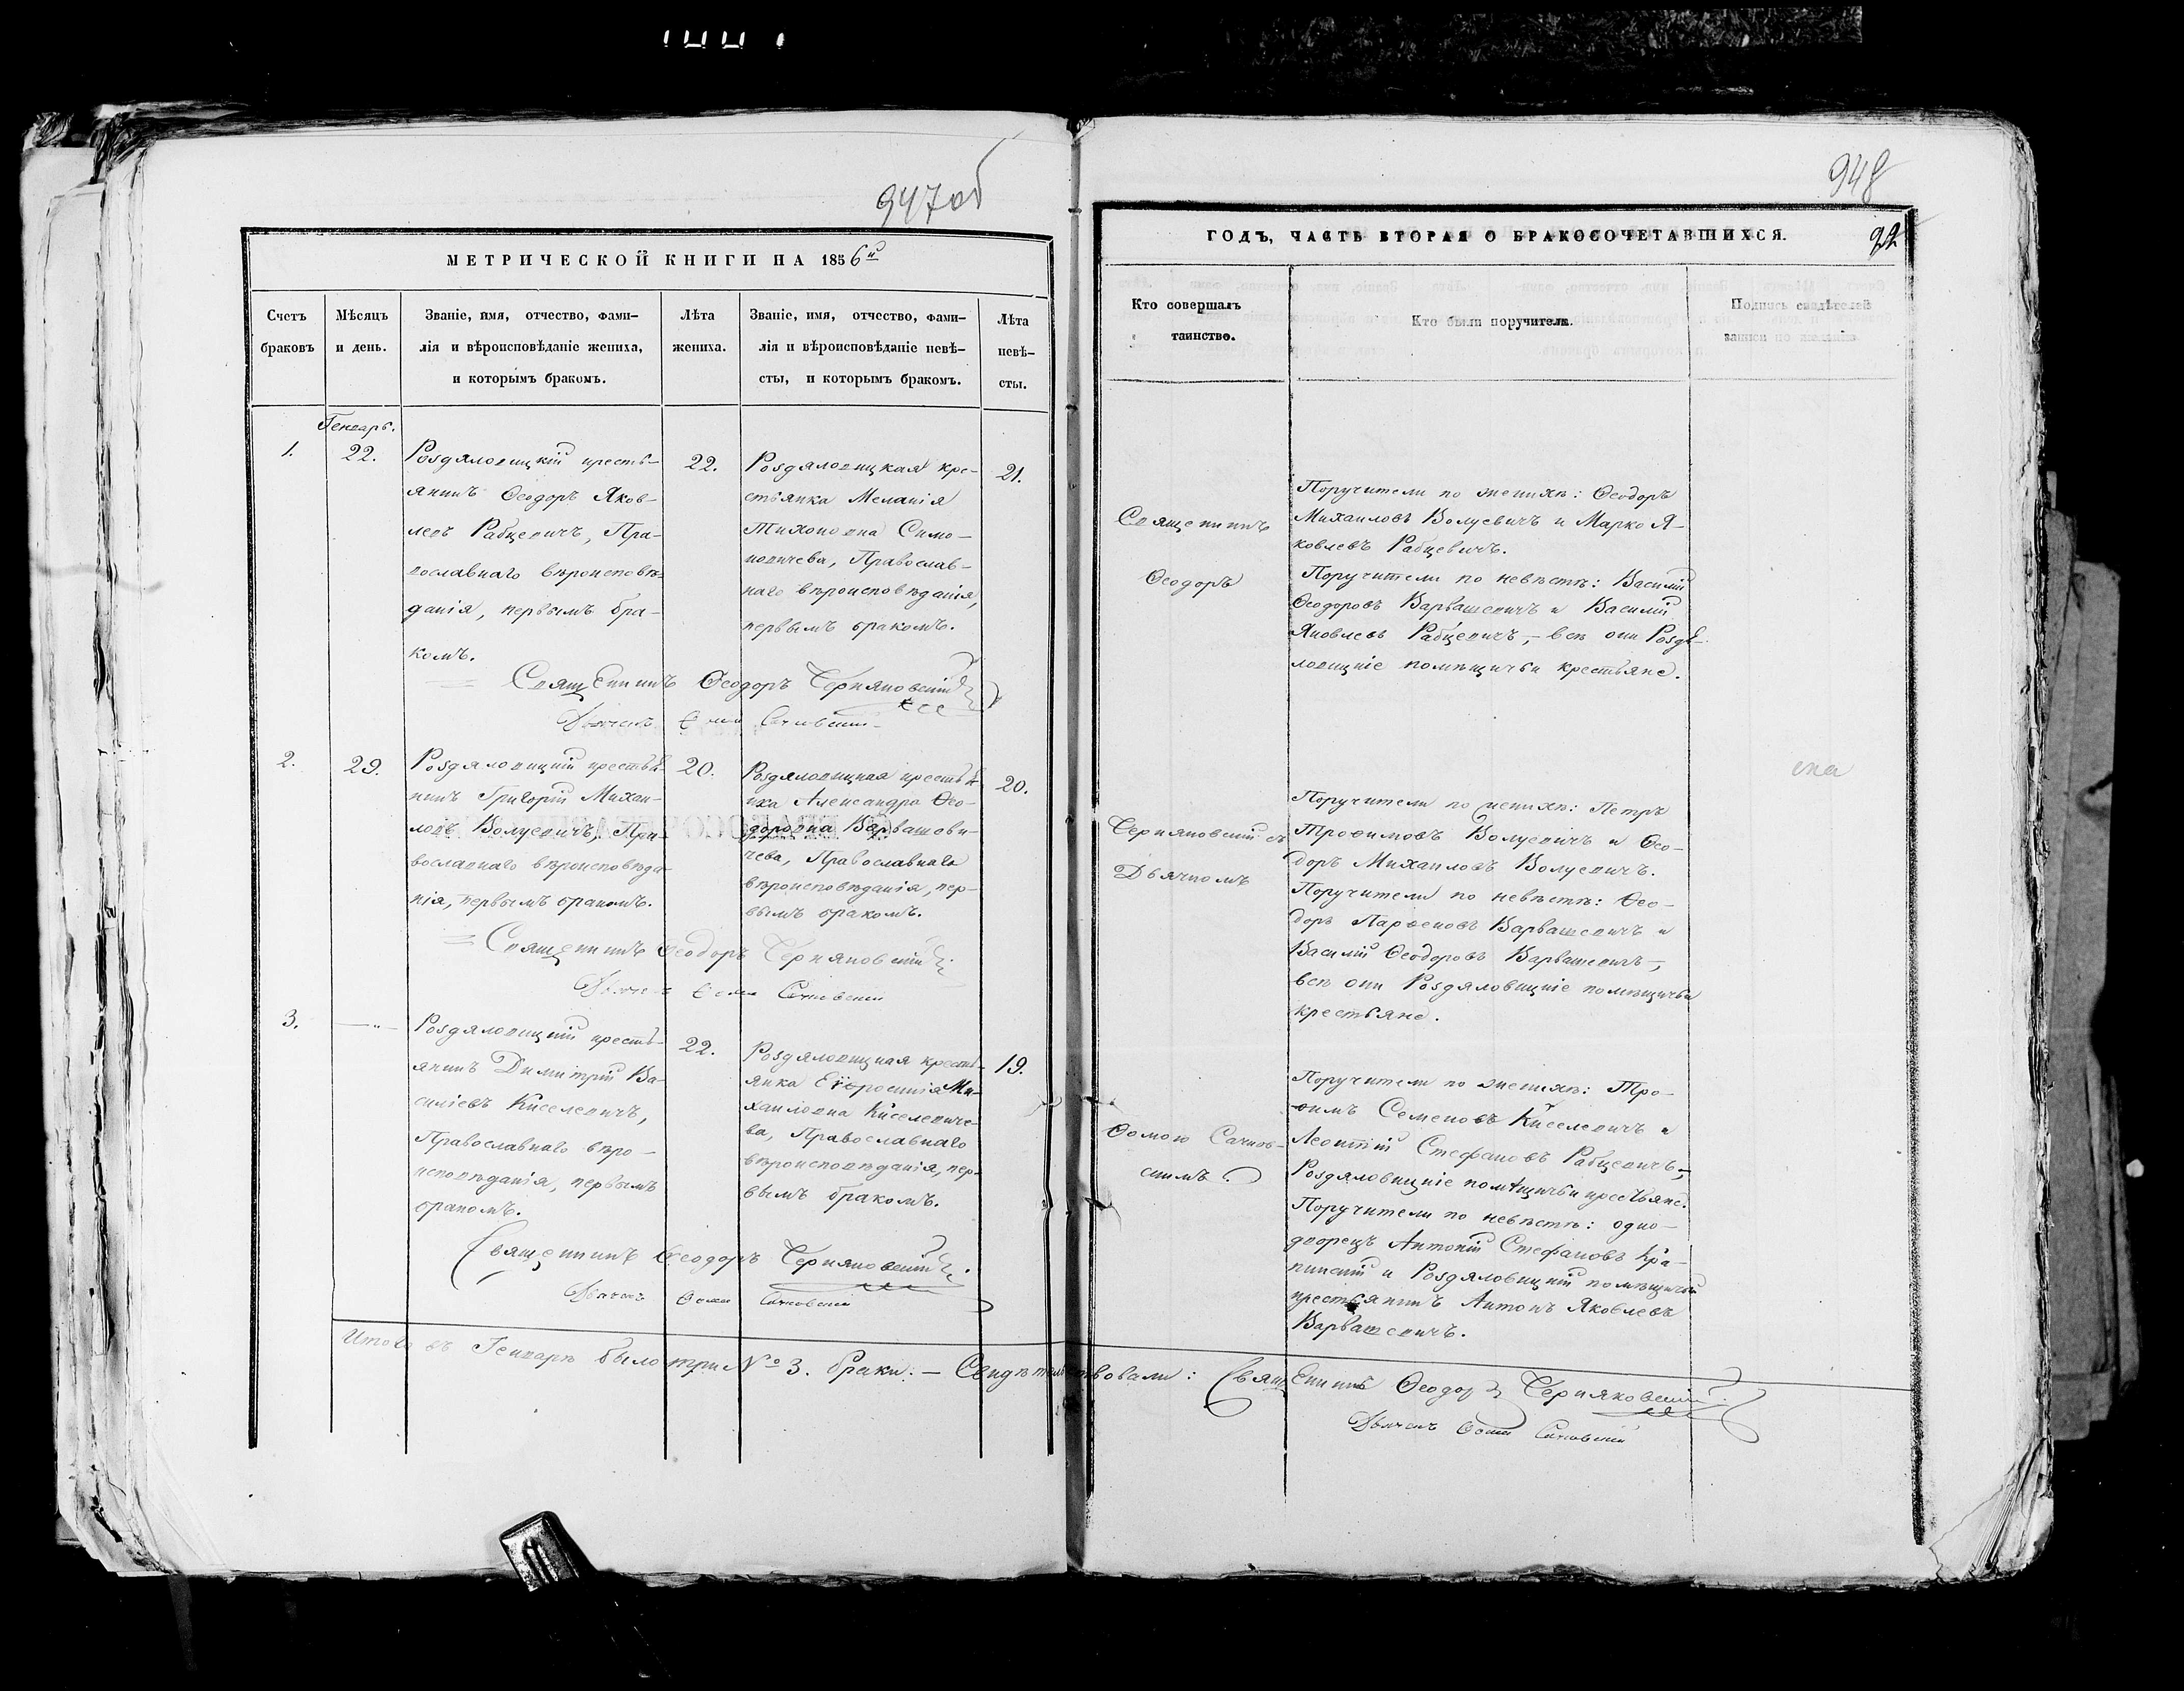 947об
МЕТРИЧЕСКОЙ КНИГИ НА 1856й
Счетъ
браковъ
Мѣсяцъ
и день.
Званіе, имя, отчество, фами-
лія и вѣроисповѣданіе жениха,
и которымъ бракомъ.
Лѣта
жениха.
Званіе, имя, отчество, фами-
лія и вѣроисповѣданіе невѣ-
сты, и которымъ бракомъ.
Лѣта
невѣ-
сты.
Генварь.
1.
22.
Роздяловицкій кресть-
янинъ Ѳеодоръ Яков-
левъ Рабцевичъ, Пра-
вославнаго вѣроисповѣ-
данія, первымъ бра-
комъ.
22.
Роздяловицкая кре-
стьянка Меланія
Тихоновна Симо-
новичева, Православ-
наго вѣроисповѣданія,
первымъ бракомъ.
21.
Священникъ Ѳеодоръ Черняковскій
Дьячекъ Ѳома Сачковскій
2.
29.
Роздяловицкій крестья-
нинъ Григорій Михаи-
ловъ Волуевичъ, Пра-
вославнаго вѣроисповѣда-
нія, первымъ бракомъ.
20.
Роздяловицкая крестья-
нка Александра Ѳео-
доровна Варвашеви-
чева, Православнаго
вѣроисповѣданія, пер-
вымъ бракомъ.
20.
Священникъ Ѳеодоръ Черняковскій
Дьячекъ Ѳома Сачковскій
3.
— „ —
Роздяловицкій кресть-
янинъ Димитрій Ва-
силіевъ Киселевичъ,
Православнаго вѣро-
исповѣданія, первымъ
бракомъ.
22.
Роздяловицкая кресть-
янка Ефросинія Ми-
хаиловна Киселевиче-
ва, Православнаго
вѣроисповѣданія, пер-
вымъ бракомъ.
19.
Священникъ Ѳеодоръ Черняковскій
Дьячекъ Ѳома Сачковскій
Итого въ Генварѣ было три № 3. браки: — Свидѣтельствовали: Священникъ Ѳеодоръ Черняковскій
Дьячекъ Ѳома Сачковскій
948
ГОДЪ, ЧАСТЬ ВТОРАЯ О БРАКОСОЧЕТАВШИХСЯ.
22
Кто совершалъ
таинство.
Кто были поручители.
Подпись свидѣтелей
записи по желанію.
Священникъ
Ѳеодоръ
Черняковскій съ
Дьячкомъ
Ѳомою Сачков-
скимъ.
Поручители по женихѣ: Ѳеодоръ
Михаиловъ Волуевичъ и Марко Я-
ковлевъ Рабцевичъ.
Поручители по невѣстѣ: Василій
Ѳеодоровъ Варвашевичъ и Василій
Яковлевъ Рабцевичъ, — всѣ они Роздя-
ловицкіе помѣщичьи крестьяне.
Поручители по женихѣ: Петръ
Трофимовъ Волуевичъ и Ѳео-
доръ Михаиловъ Волуевичъ.
Поручители по невѣстѣ: Ѳео-
доръ Парѳеновъ Варвашевичъ и
Василій Ѳеодоровъ Варвашевичъ —,
всѣ они Роздяловицкіе помѣщичьи
крестьяне.
Поручители по женихѣ: Тро-
фимъ Семеновъ Киселевичъ и
Леонтій Стефановъ Рабцевичъ —,
Роздяловицкіе помѣщичьи крестьяне.
Поручители по невѣстѣ: одно-
дворецъ Антоній Стефановъ Кра-
пинскій и Роздяловицкій помѣщичій
крестьянинъ Антонъ Яковлевъ
Варвашевичъ.